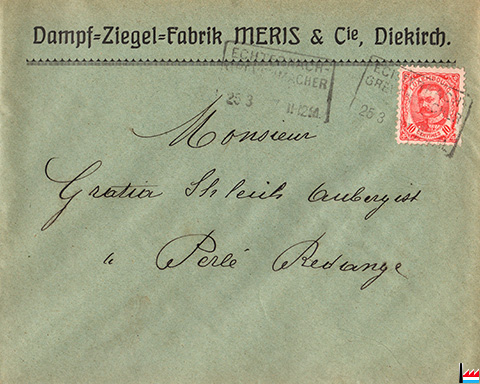 Dampf=Ziegel=Fabrik MERIS & Cie, Diekirch.
ECHTERNACH-
GREVENMACHER
25 3 11-12M.
ECH
GREV
25 3
LUXEMBOURG
10 10
CENTIMES
Monsieur
Gratia Aubergist
à Perlé Redange